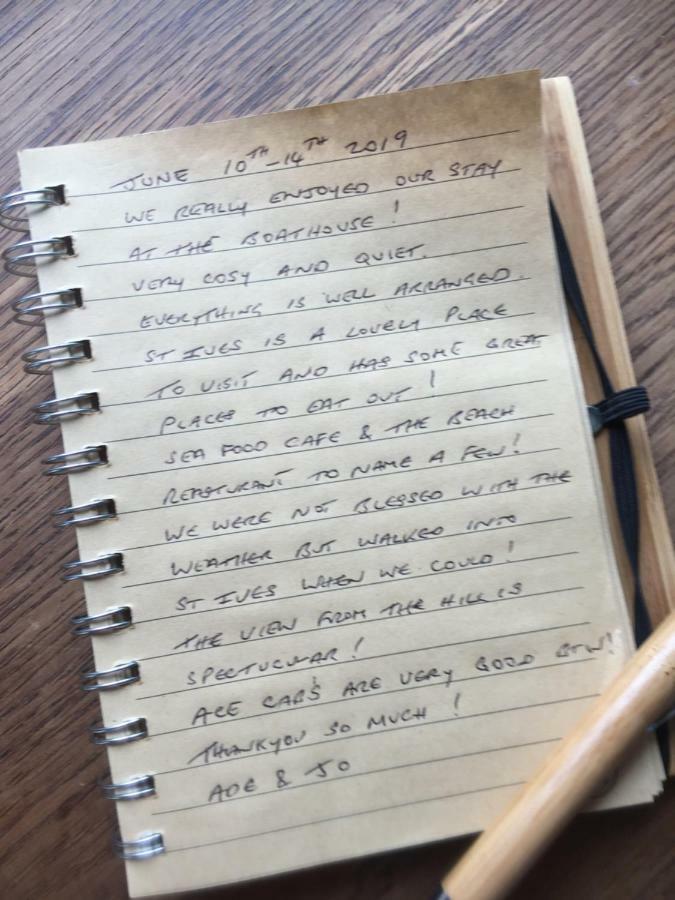 JUNE 10TH-14TH 2019
WE REALLY ENJOYED OUR STAY
AT THE BOATHOUSE!
VERY COSY AND QUIET.
EVERYTHING IS WELL ARRANGED.
ST IVES IS A LOVELY PLACE
TO VISIT AND HAS SOME GREAT
PLACES TO EAT OUT!
SEA FOOD CAFE & THE BEACH
RESTURANT TO NAME A FEW!
WE WERE NOT BLESSED WITH THE
WEATHER BUT WALKED INTO
ST IVES WHEN WE COULD!
THE VIEW FROM THE HILL IS
SPECTUCULAR!
ACE CABS ARE VERY GOOD BTW!
THANKYOU SO MUCH!
ADE & JO